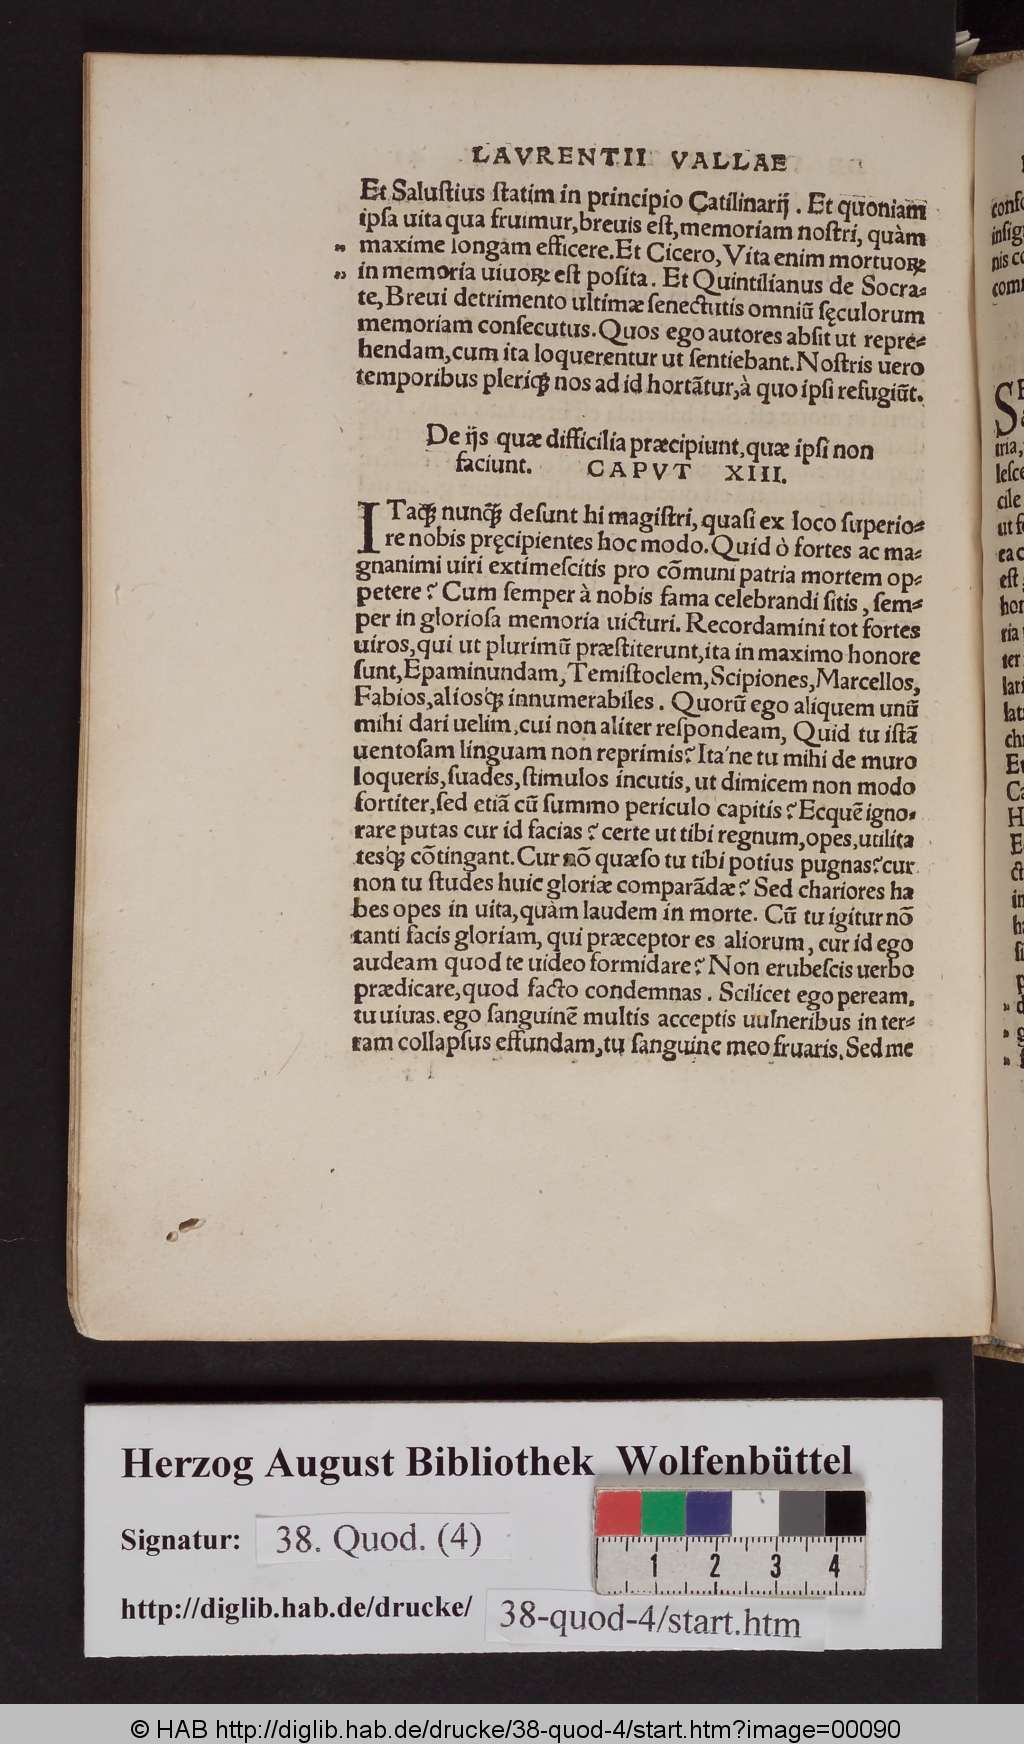 LAVRENTII VALLAE
Et Saluſtius ſtatim in principio Catilinarij. Et quoniam
ipſa uita qua fruimur, breuis eſt, memoriam noſtri, quàm
„ maxime longam efficere. Et Cicero, Vita enim mortuoꝝ
„ in memoria uiuoꝝ eſt poſita. Et Quintilianus de Socra⸗
te, Breui detrimento ultimæ ſenectutis omniũ ſęculorum
memoriam conſecutus. Quos ego autores abſit ut repre⸗
hendam, cum ita loquerentur ut ſentiebant. Noſtris uero
temporibus pleriqꝫ nos ad id hortãtur, à quo ipſi refugiũt.
De ijs quæ difficilia præcipiunt, quæ ipſi non
faciunt. CAPVT XIII.
ITaqꝫ nunqꝫ̃ deſunt hi magiſtri, quaſi ex loco ſuperio⸗
re nobis pręcipientes hoc modo. Quid ò fortes ac ma⸗
gnanimi uiri extimeſcitis pro cõmuni patria mortem op⸗
petere? Cum ſemper à nobis fama celebrandi ſitis, ſem⸗
per in glorioſa memoria uicturi. Recordamini tot fortes
uiros, qui ut plurimũ præſtiterunt, ita in maximo honore
ſunt, Epaminundam, Temiſtoclem, Scipiones, Marcellos,
Fabios, aliosqꝫ innumerabiles. Quorũ ego aliquem unũ
mihi dari uelim, cui non aliter reſpondeam, Quid tu iſtã
uentoſam linguam non reprimis? Ita'ne tu mihi de muro
loqueris, ſuades, ſtimulos incutis, ut dimicem non modo
fortiter, ſed etiã cũ ſummo periculo capitis? Ecquẽ igno⸗
rare putas cur id facias? certe ut tibi regnum, opes, utilita
tesqꝫ cõtingant. Cur nõ quæſo tu tibi potius pugnas? cur
non tu ſtudes huic gloriæ comparãdæ? Sed chariores ha
bes opes in uita, quàm laudem in morte. Cũ tu igitur nõ
tanti facis gloriam, qui præceptor es aliorum, cur id ego
audeam quod te uideo formidare? Non erubeſcis uerbo
prædicare, quod facto condemnas. Scilicet ego peream,
tu uiuas. ego ſanguinẽ multis acceptis uulneribus in ter⸗
ram collapſus effundam, tu ſanguine meo fruaris. Sed me
Herzog August Bibliothek Wolfenbüttel
Signatur: 38. Quod. (4)
1 2 3 4
http://diglib.hab.de/drucke/ 38-quod-4/start.htm
© HAB http://diglib.hab.de/drucke/38-quod-4/start.htm?image=00090